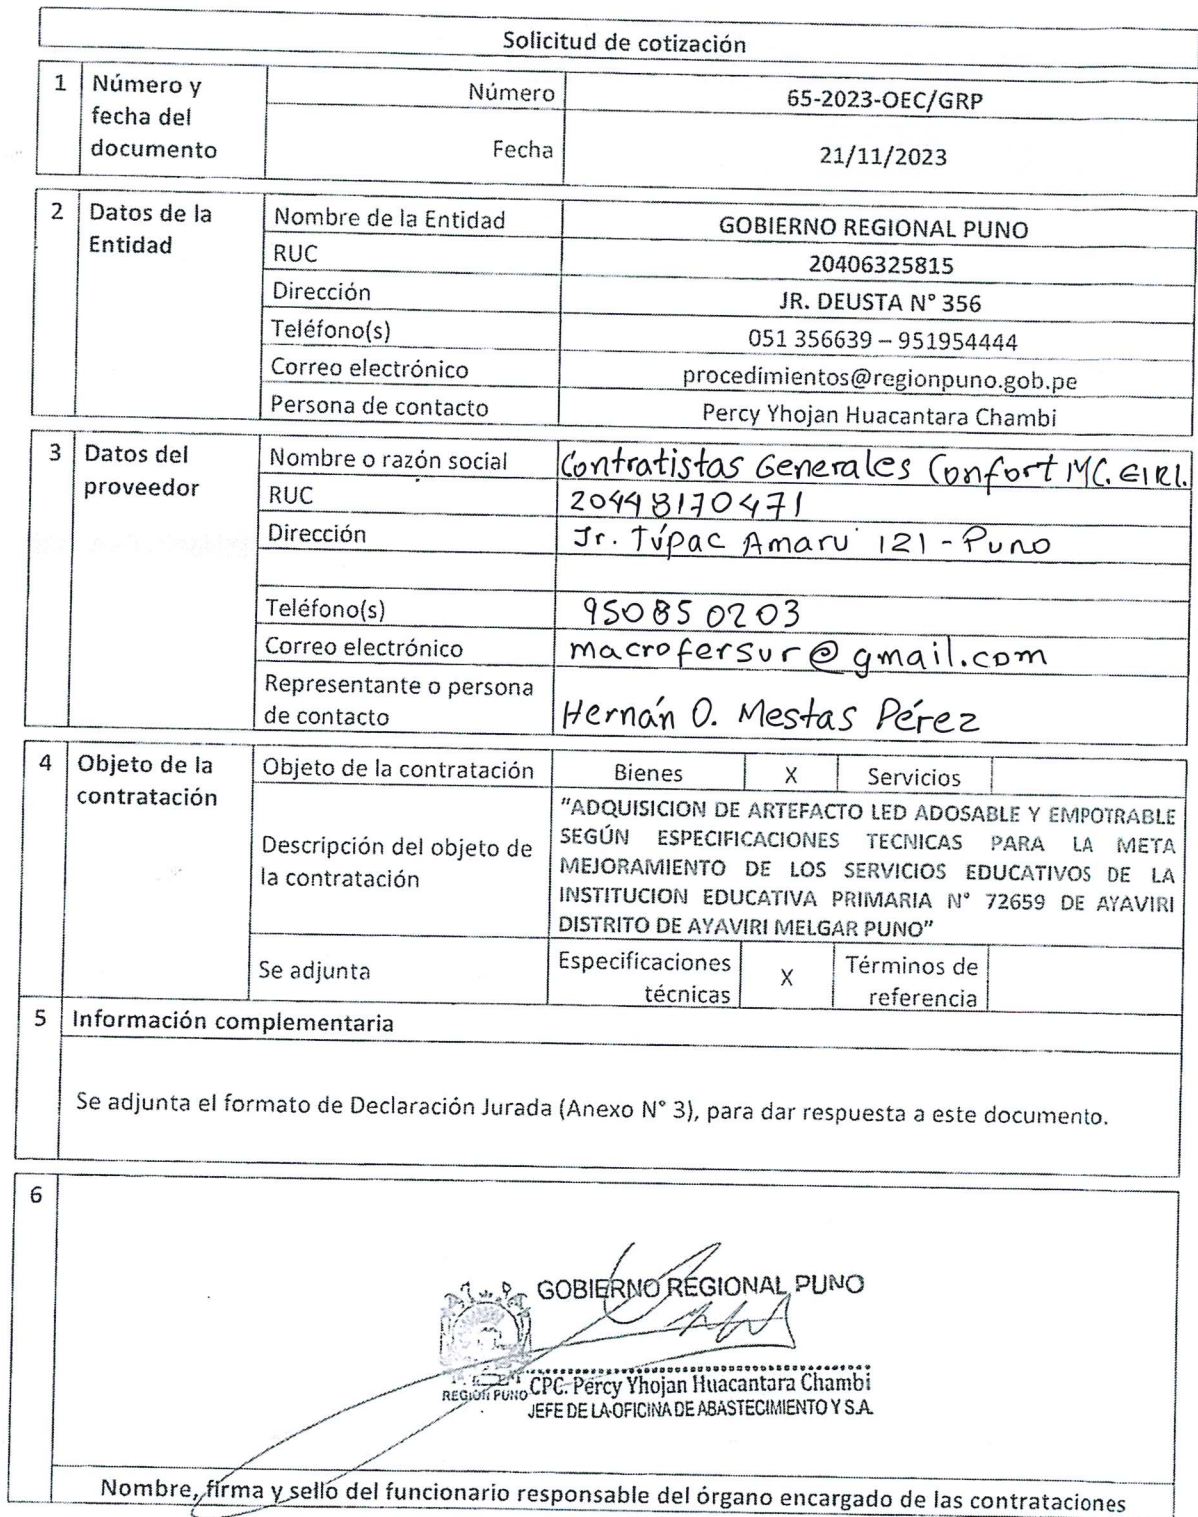 Solicitud de cotización
1 Número y fecha del documento
Número 65-2023-OEC/GRP
Fecha 21/11/2023
2 Datos de la Entidad
Nombre de la Entidad GOBIERNO REGIONAL PUNO
RUC 20406325815
Dirección JR. DEUSTA N° 356
Teléfono(s) 051 356639 – 951954444
Correo electrónico procedimientos@regionpuno.gob.pe
Persona de contacto Percy Yhojan Huacantara Chambi
3 Datos del proveedor
Nombre o razón social Contratistas Generales Confort MC. EIRL.
RUC 20448170471
Dirección Jr. Túpac Amaru 121 - Puno
Teléfono(s) 950850203
Correo electrónico macrofersur@gmail.com
Representante o persona de contacto Hernán O. Mestas Pérez
4 Objeto de la contratación
Objeto de la contratación Bienes X Servicios
Descripción del objeto de la contratación
"ADQUISICION DE ARTEFACTO LED ADOSABLE Y EMPOTRABLE
SEGÚN ESPECIFICACIONES TECNICAS PARA LA META
MEJORAMIENTO DE LOS SERVICIOS EDUCATIVOS DE LA
INSTITUCION EDUCATIVA PRIMARIA N° 72659 DE AYAVIRI
DISTRITO DE AYAVIRI MELGAR PUNO"
Se adjunta Especificaciones técnicas X Términos de referencia
5 Información complementaria
Se adjunta el formato de Declaración Jurada (Anexo N° 3), para dar respuesta a este documento.
6
GOBIERNO REGIONAL PUNO
REGIÓN PUNO
CPC. Percy Yhojan Huacantara Chambi
JEFE DE LA OFICINA DE ABASTECIMIENTO Y S.A.
Nombre, firma y sello del funcionario responsable del órgano encargado de las contrataciones